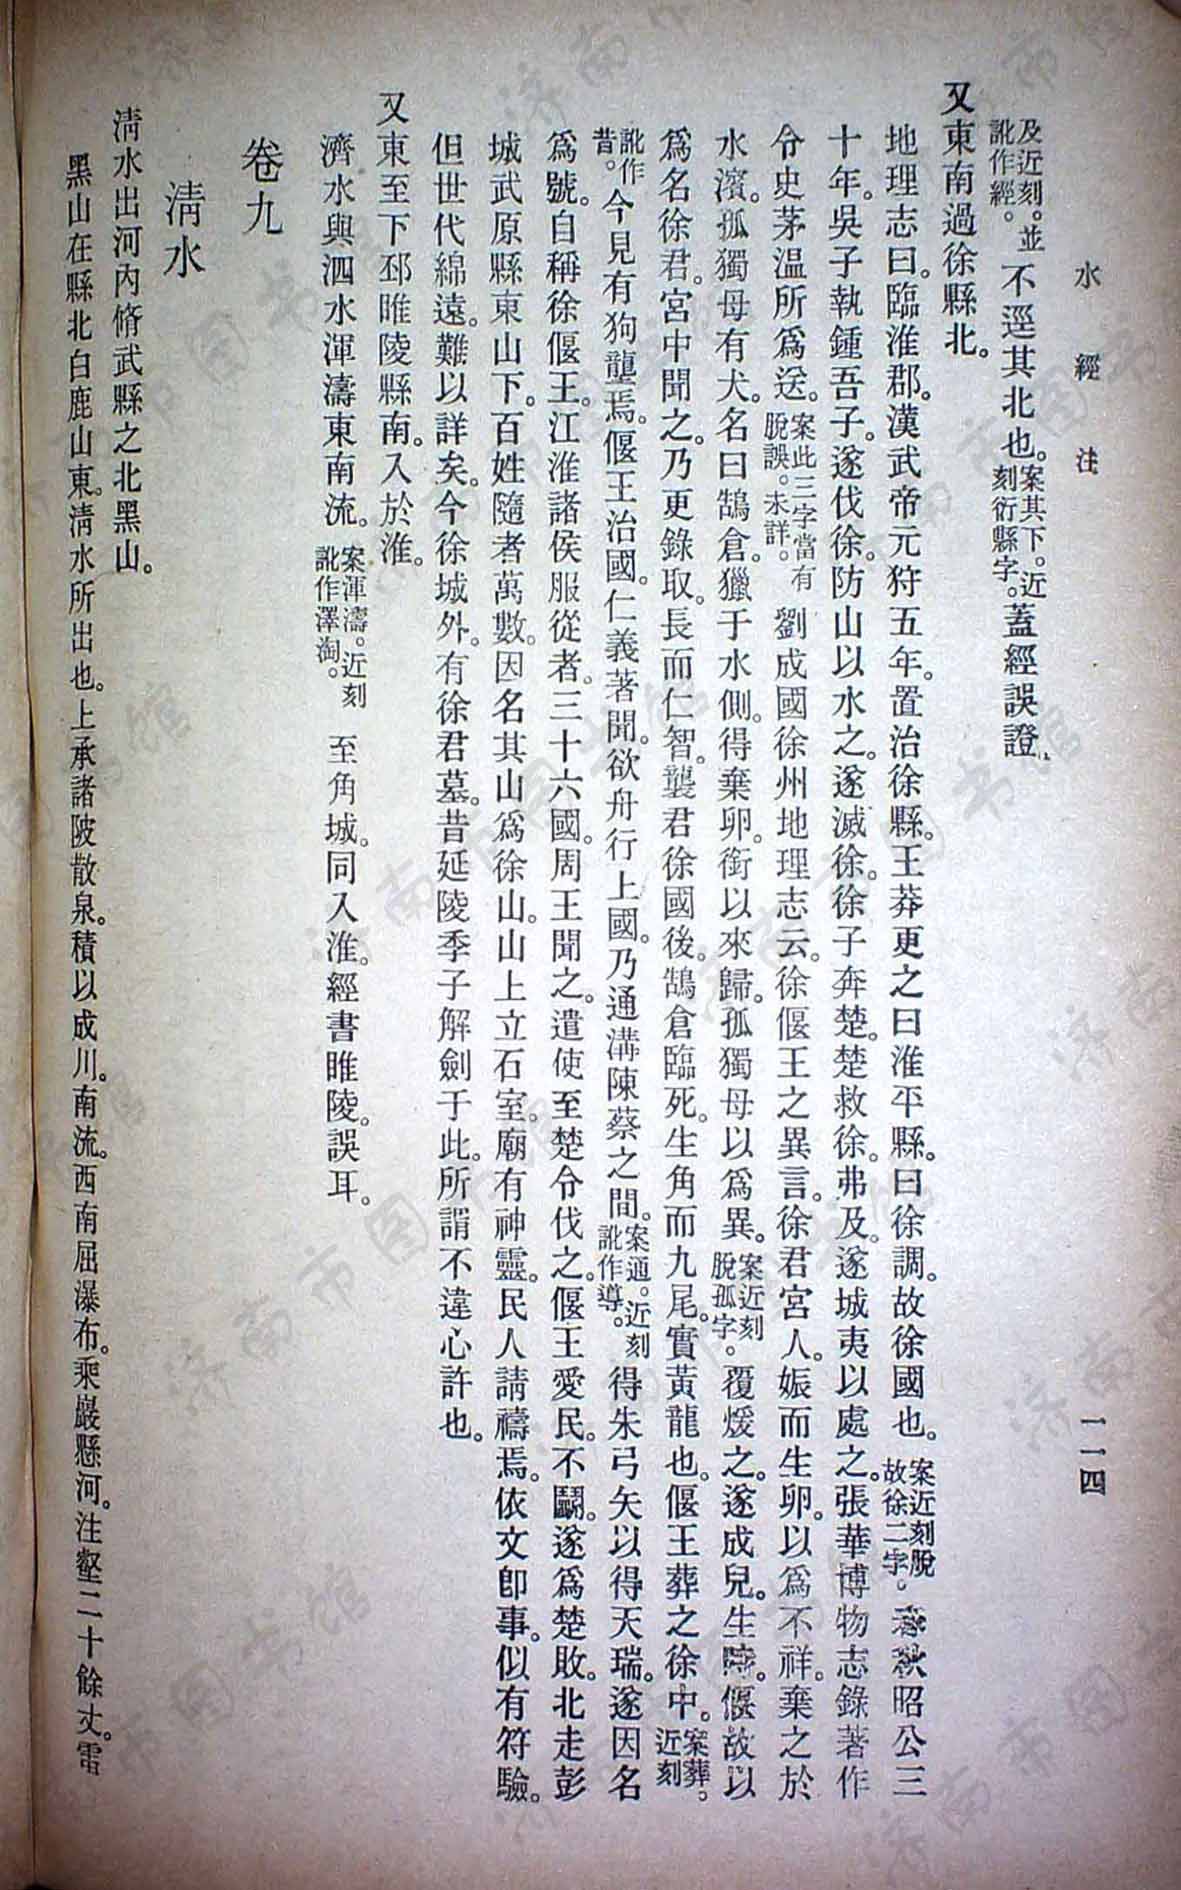 水經注
一一四
及近刻。並訛作經。不逕其北也。案其下。近刻衍縣字。蓋經誤證。
又東南過徐縣北。
地理志曰。臨淮郡。漢武帝元狩五年。置治徐縣。王莽更之曰淮平縣。曰徐調。故徐國也。案近刻脫故徐二字。春秋昭公三
十年。吳子執鍾吾子。遂伐徐。防山以水之。遂滅徐。徐子奔楚。楚救徐。弗及。遂城夷以處之。張華博物志錄著作
令史茅温所爲送。案此三字當有脫誤。未詳。劉成國徐州地理志云。徐偃王之異言。徐君宮人。娠而生卵。以爲不祥。棄之於
水濱。孤獨母有犬。名曰鵠倉。獵于水側。得棄卵。銜以來歸。孤獨母以爲異。案近刻脫孤字。覆煖之。遂成兒。生時偃。故以
爲名徐君。宮中聞之。乃更錄取。長而仁智。襲君徐國後。鵠倉臨死。生角而九尾。實黃龍也。偃王葬之徐中。案葬。近刻
訛作昔。今見有狗壟焉。偃王治國。仁義著聞。欲舟行上國。乃通溝陳蔡之間。案通。近刻訛作導。得朱弓矢以得天瑞。遂因名
爲號。自稱徐偃王。江淮諸侯服從者。三十六國。周王聞之。遣使至楚令伐之。偃王愛民。不鬭。遂爲楚敗。北走彭
城武原縣東山下。百姓隨者萬數。因名其山爲徐山。山上立石室。廟有神靈。民人請禱焉。依文卽事。似有符驗。
但世代綿遠。難以詳矣。今徐城外。有徐君墓。昔延陵季子解劍于此。所謂不違心許也。
又東至下邳睢陵縣南。入於淮。
濟水與泗水渾濤東南流。案渾濤。近刻訛作澤淘。至角城。同入淮。經書睢陵。誤耳。
卷九
淸水
淸水出河內脩武縣之北黑山。
黑山在縣北白鹿山東。淸水所出也。上承諸陂散泉。積以成川。南流。西南屈瀑布。乘巖懸河。注壑二十餘丈。雷